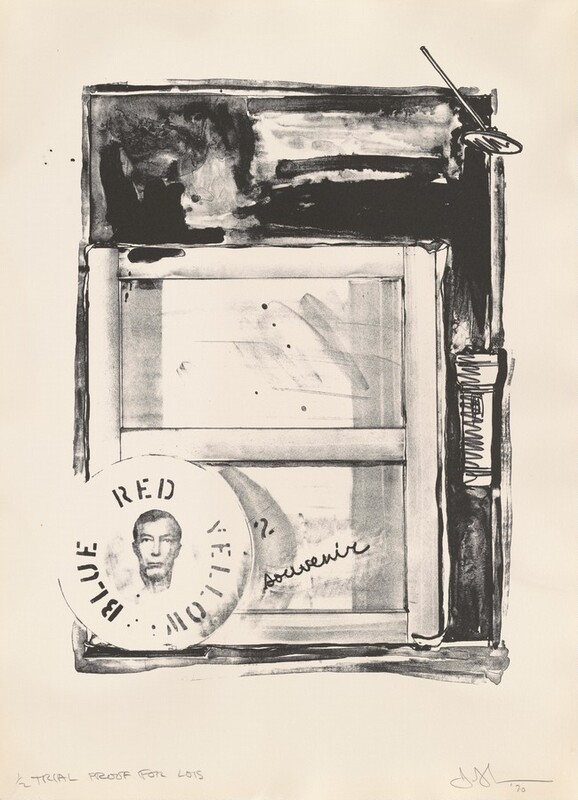 RED
YELLOW
BLUE
souvenir
1/2 TRIAL PROOF FOR LOIS
'70